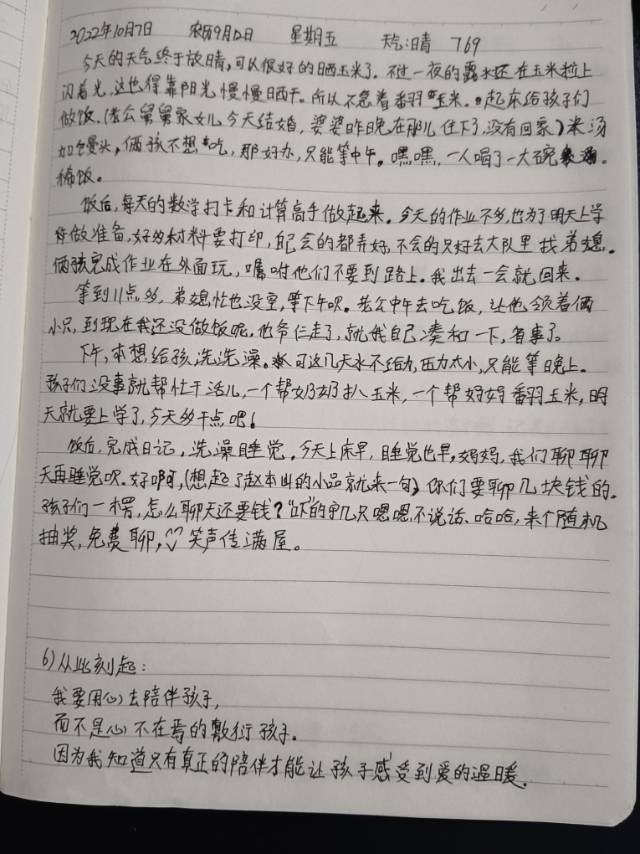 2022年10月7日 农历9月12日 星期五 天气:晴 769
今天的天气终于放晴,可以很好的晒玉米了。不过一夜的露水还在玉米粒上
闪着光,这也得靠阳光慢慢晒干。所以不急着翻玉米。起床给孩子们
做饭。(老公舅舅家女儿今天结婚,婆婆昨晚在那儿住下了,没有回家)米汤
加馒头,俩孩不想吃,那好办,只能等中午。嘿嘿,一人喝了一大碗
稀饭。
饭后,每天的数学打卡和计算高手做起来。今天的作业不多,也为了明天上学
好做准备,好多材料要打印,配会的都弄好,不会的只好去大队里找弟媳。
俩孩完成作业在外面玩,嘱咐他们不要到路上。我出去一会就回来。
等到11点多,弟媳忙也没空,等下午呗。老公中午去吃饭,让他领着俩
小只,到现在我还没做饭呢,他爷仨走了,就我自己凑和一下,省事了。
下午,本想给孩洗洗澡。可这几天水不给力,压力太小,只能等晚上。
孩子们没事就帮忙干活儿,一个帮奶奶扒玉米,一个帮妈妈翻玉米,明
天就要上学了,今天多干点吧!
饭后,完成日记,洗澡睡觉。今天上床早,睡觉也早,妈妈,我们聊聊
天再睡觉呗。好啊,(想起了赵本山的小品就来一句)你们要聊几块钱的。
孩子们一愣,怎么聊天还要钱?"吓"的自己只嗯嗯,不说话。哈哈,来个随机
抽奖,免费聊,♡笑声传满屋。
6)从此刻起:
我要用心去陪伴孩子,
而不是心不在焉的敷衍孩子。
因为我知道只有真正的陪伴才能让孩子感受到爱的温暖。